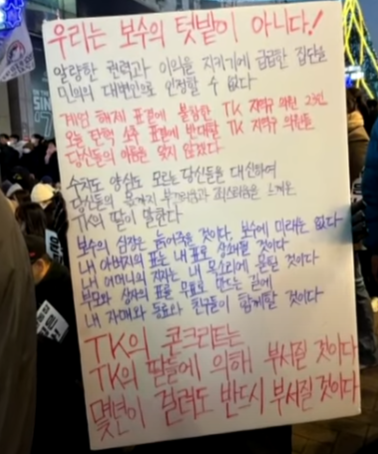 우리는 보수의 텃밭이 아니다!
알량한 권력과 이익을 지키기에 급급한 집단을
민의의 대변인으로 인정할 수 없다
계엄 해제 표결에 불참한 TK 지역구 의원 23인
오늘 탄핵 소추 표결에 반대할 TK 지역구 의원들
당신들의 이름을 잊지 않겠다
수치도 양심도 모르는 당신들을 대신하여
당신들의 몫까지 부끄러움과 죄스러움을 느끼는
TK의 딸이 말한다
보수의 심장은 늙어죽을 것이다. 보수에 미래는 없다
내 아버지의 표는 내 표로 상쇄될 것이다
내 어머니의 지지는 내 목소리에 묻힐 것이다
부모와 상사의 표를 무효로 만드는 길에
내 자매와 동료와 친구들이 함께할 것이다
TK의 콘크리트는
TK의 딸들에 의해 부서질 것이다
몇년이 걸려도 반드시 부서질 것이다